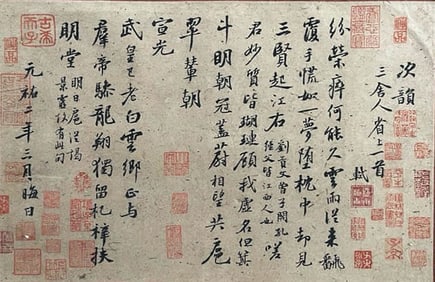 次韻
三舍人省上一首
軾
紛榮瘁何能久雲雨從來翻
覆手慌如一夢墮枕中却見
三賢起江右
劉貢父曾子開孔
經父皆江西人也
嗟
君妙質皆瑚璉顧我虛名但箕
斗明朝冠蓋蔚相望共扈
翠輦朝
宣光
武皇已老白雲鄉正与
羣帝驂龍翔獨留杞梓扶
明堂
明日扈從謁
景靈故有此句
元祐二年三月晦日